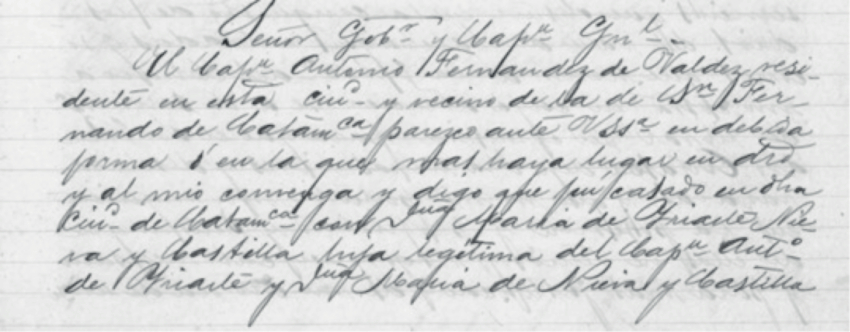 Señor Gobr y Capn Gnl.
El Capn Antonio Fernandez de Valdez resi-
dente en esta ciud y vecino de la de Sn Fer-
nando de Catamca parezco ante VSsa en debida
forma i en la que mas haya lugar en dro
y al mio convenga y digo que fui casado en dha
Ciud de Catamca con Dña Maria de Yriarte Nie-
va y Castilla hija legitima del Capn Anto
de Yriarte y Dña Maria de Nieva y Castilla